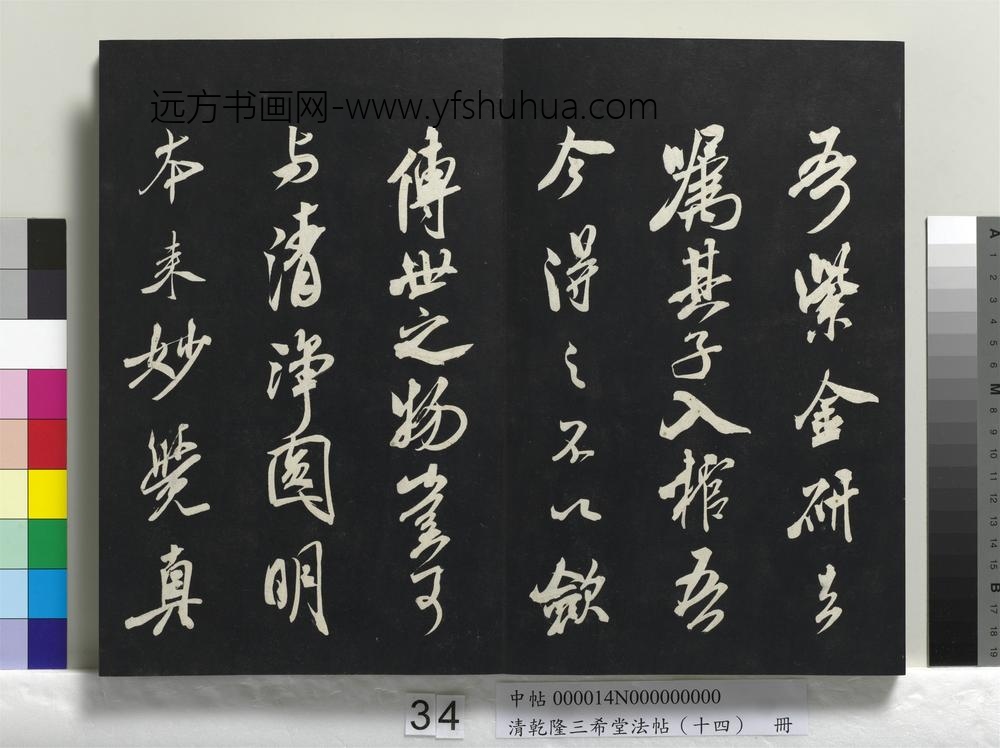 远方书画网-www.yfshuhua.com
吾紫金研去
嘱其子入棺吾
今得之不以敛
傳世之物豈可
与清淨圓明
本来妙覺真
34
中帖 000014N000000000
清乾隆三希堂法帖（十四） 冊
A 1 2 3 4 5 6 M 8 9 10 11 12 13 14 15 B 17 18 19